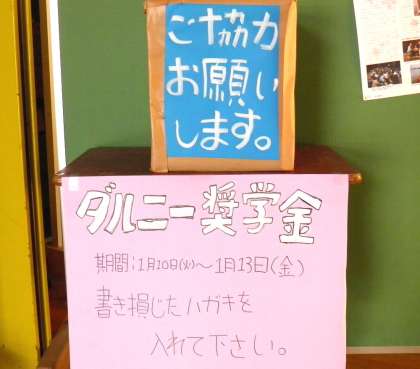 ご協力
お願い
します。
ダルニー奨学金
期間:1月10日(火)～1月13日(金)
書き損じたハガキを
入れて下さい。